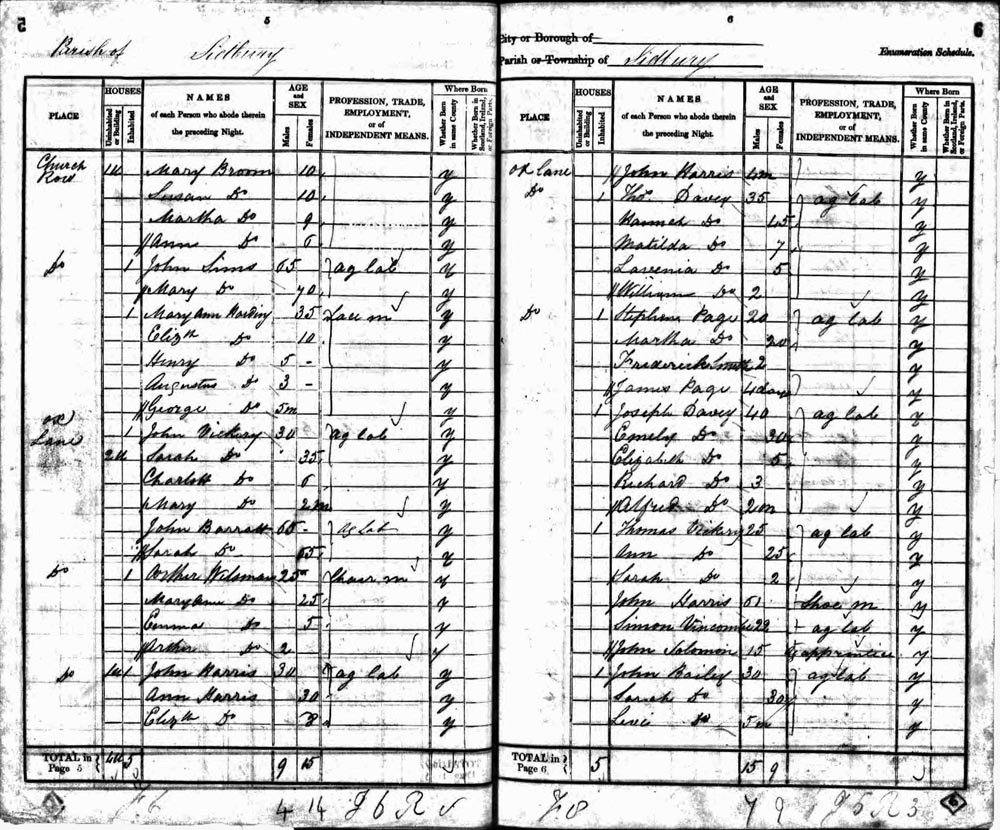 5
5
Parish of Sidbury
HOUSES
AGE and SEX
Where Born
PLACE
Uninhabited or Building
Inhabited
NAMES
of each Person who abode therein the preceding Night.
Males
Females
PROFESSION, TRADE, EMPLOYMENT, or of INDEPENDENT MEANS.
Whether Born in same County
Whether Born in Scotland, Ireland, or Foreign Parts.
Church Row 1U Mary Broom 10 y
Susan Do 10 y
Martha Do 9 y
Ann Do 6 y
Do 1 John Sims 65 ag lab y
Mary Do 70 y
1 Mary Ann Harding 35 Lace m y
Elizth Do 10 y
Henry Do 5 - y
Augustus Do 3 - y
George Do 5m y
ox Lane 1 John Vickery 30 ag lab y
2U Sarah Do 35 y
Charlott Do 6 y
Mary Do 2m y
John Barratt 65 - ag lab y
Sarah Do 65 y
Do 1 Arther 25 m y
Mary Ann Do 25 y
Emma Do 5 y
Arther Do 2 y
Do 1U 1 John Harris 30 ag lab y
Ann Harris 30 y
Elizth Do 8 y
TOTAL in Page 5 4U 5 9 15
4 14 J 6 R
6
6
City or Borough of
Parish or Township of Sidbury
Enumeration Schedule.
HOUSES
AGE and SEX
Where Born
PLACE
Uninhabited or Building
Inhabited
NAMES
of each Person who abode therein the preceding Night.
Males
Females
PROFESSION, TRADE, EMPLOYMENT, or of INDEPENDENT MEANS.
Whether Born in same County
Whether Born in Scotland, Ireland, or Foreign Parts.
ox lane John Harris 4m y
Do 1 Thos. Davey 35 ag lab y
Hannah Do 45 y
Matilda Do 7 y
Lavenia Do 5 y
William Do 2 y
Do 1 Stephen Page 20 ag lab y
Martha Do 20 y
Frederick Smith 2 y
James Page 4 days y
1 Joseph Davey 40 ag lab y
Emely Do 30 y
Elizabeth Do 5 y
Richard Do 3 y
Alfred Do 2m y
1 Thomas Vickery 25 ag lab y
Ann Do 25 y
Sarah Do 2 y
John Harris 61 Shoe m y
Simon Vincombe 22 ag lab y
John Solomon 15 apprentice y
1 John Bailey 30 ag lab y
Sarah Do 30 y
Do 5m y
TOTAL in Page 6 5 15 9
7 9 J 5 R 3
6